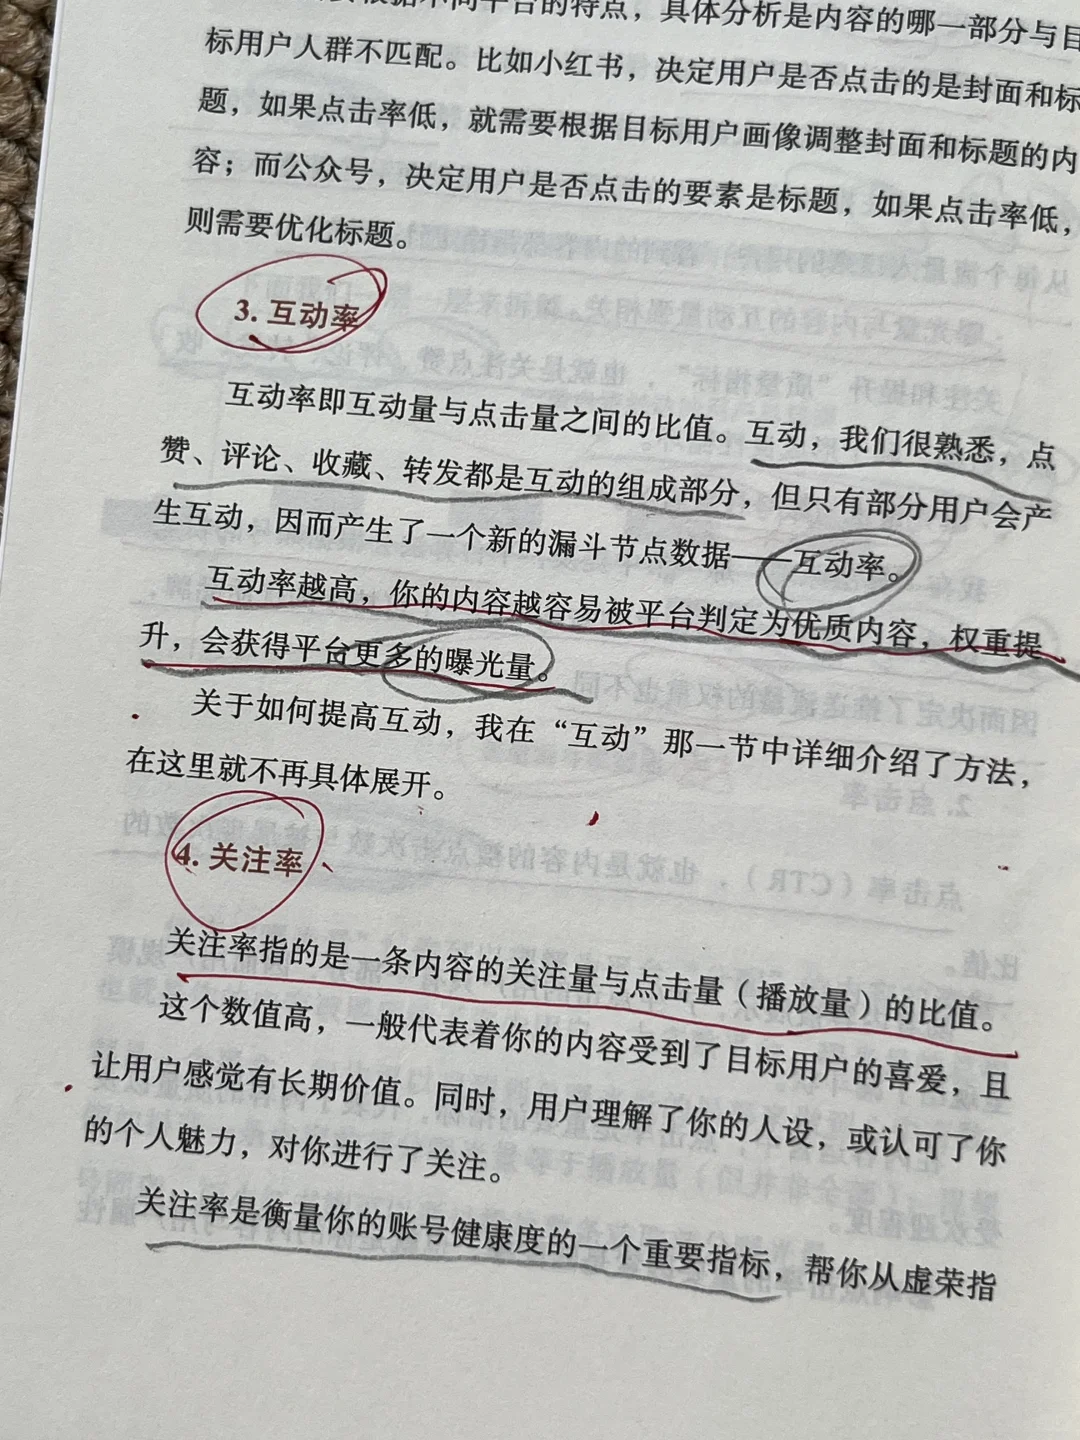 根据不同平台的特点，具体分析是内容的哪一部分与目
标用户人群不匹配。比如小红书，决定用户是否点击的是封面和标
题，如果点击率低，就需要根据目标用户画像调整封面和标题的内
容；而公众号，决定用户是否点击的要素是标题，如果点击率低，
则需要优化标题。
3. 互动率
互动率即互动量与点击量之间的比值。互动，我们很熟悉，点
赞、评论、收藏、转发都是互动的组成部分，但只有部分用户会产
生互动，因而产生了一个新的漏斗节点数据——互动率。
互动率越高，你的内容越容易被平台判定为优质内容，权重提
升，会获得平台更多的曝光量。
关于如何提高互动，我在“互动”那一节中详细介绍了方法，
在这里就不再具体展开。
4. 关注率
关注率指的是一条内容的关注量与点击量（播放量）的比值。
这个数值高，一般代表着你的内容受到了目标用户的喜爱，且
让用户感觉有长期价值。同时，用户理解了你的人设，或认可了你
的个人魅力，对你进行了关注。
关注率是衡量你的账号健康度的一个重要指标，帮你从虚荣指